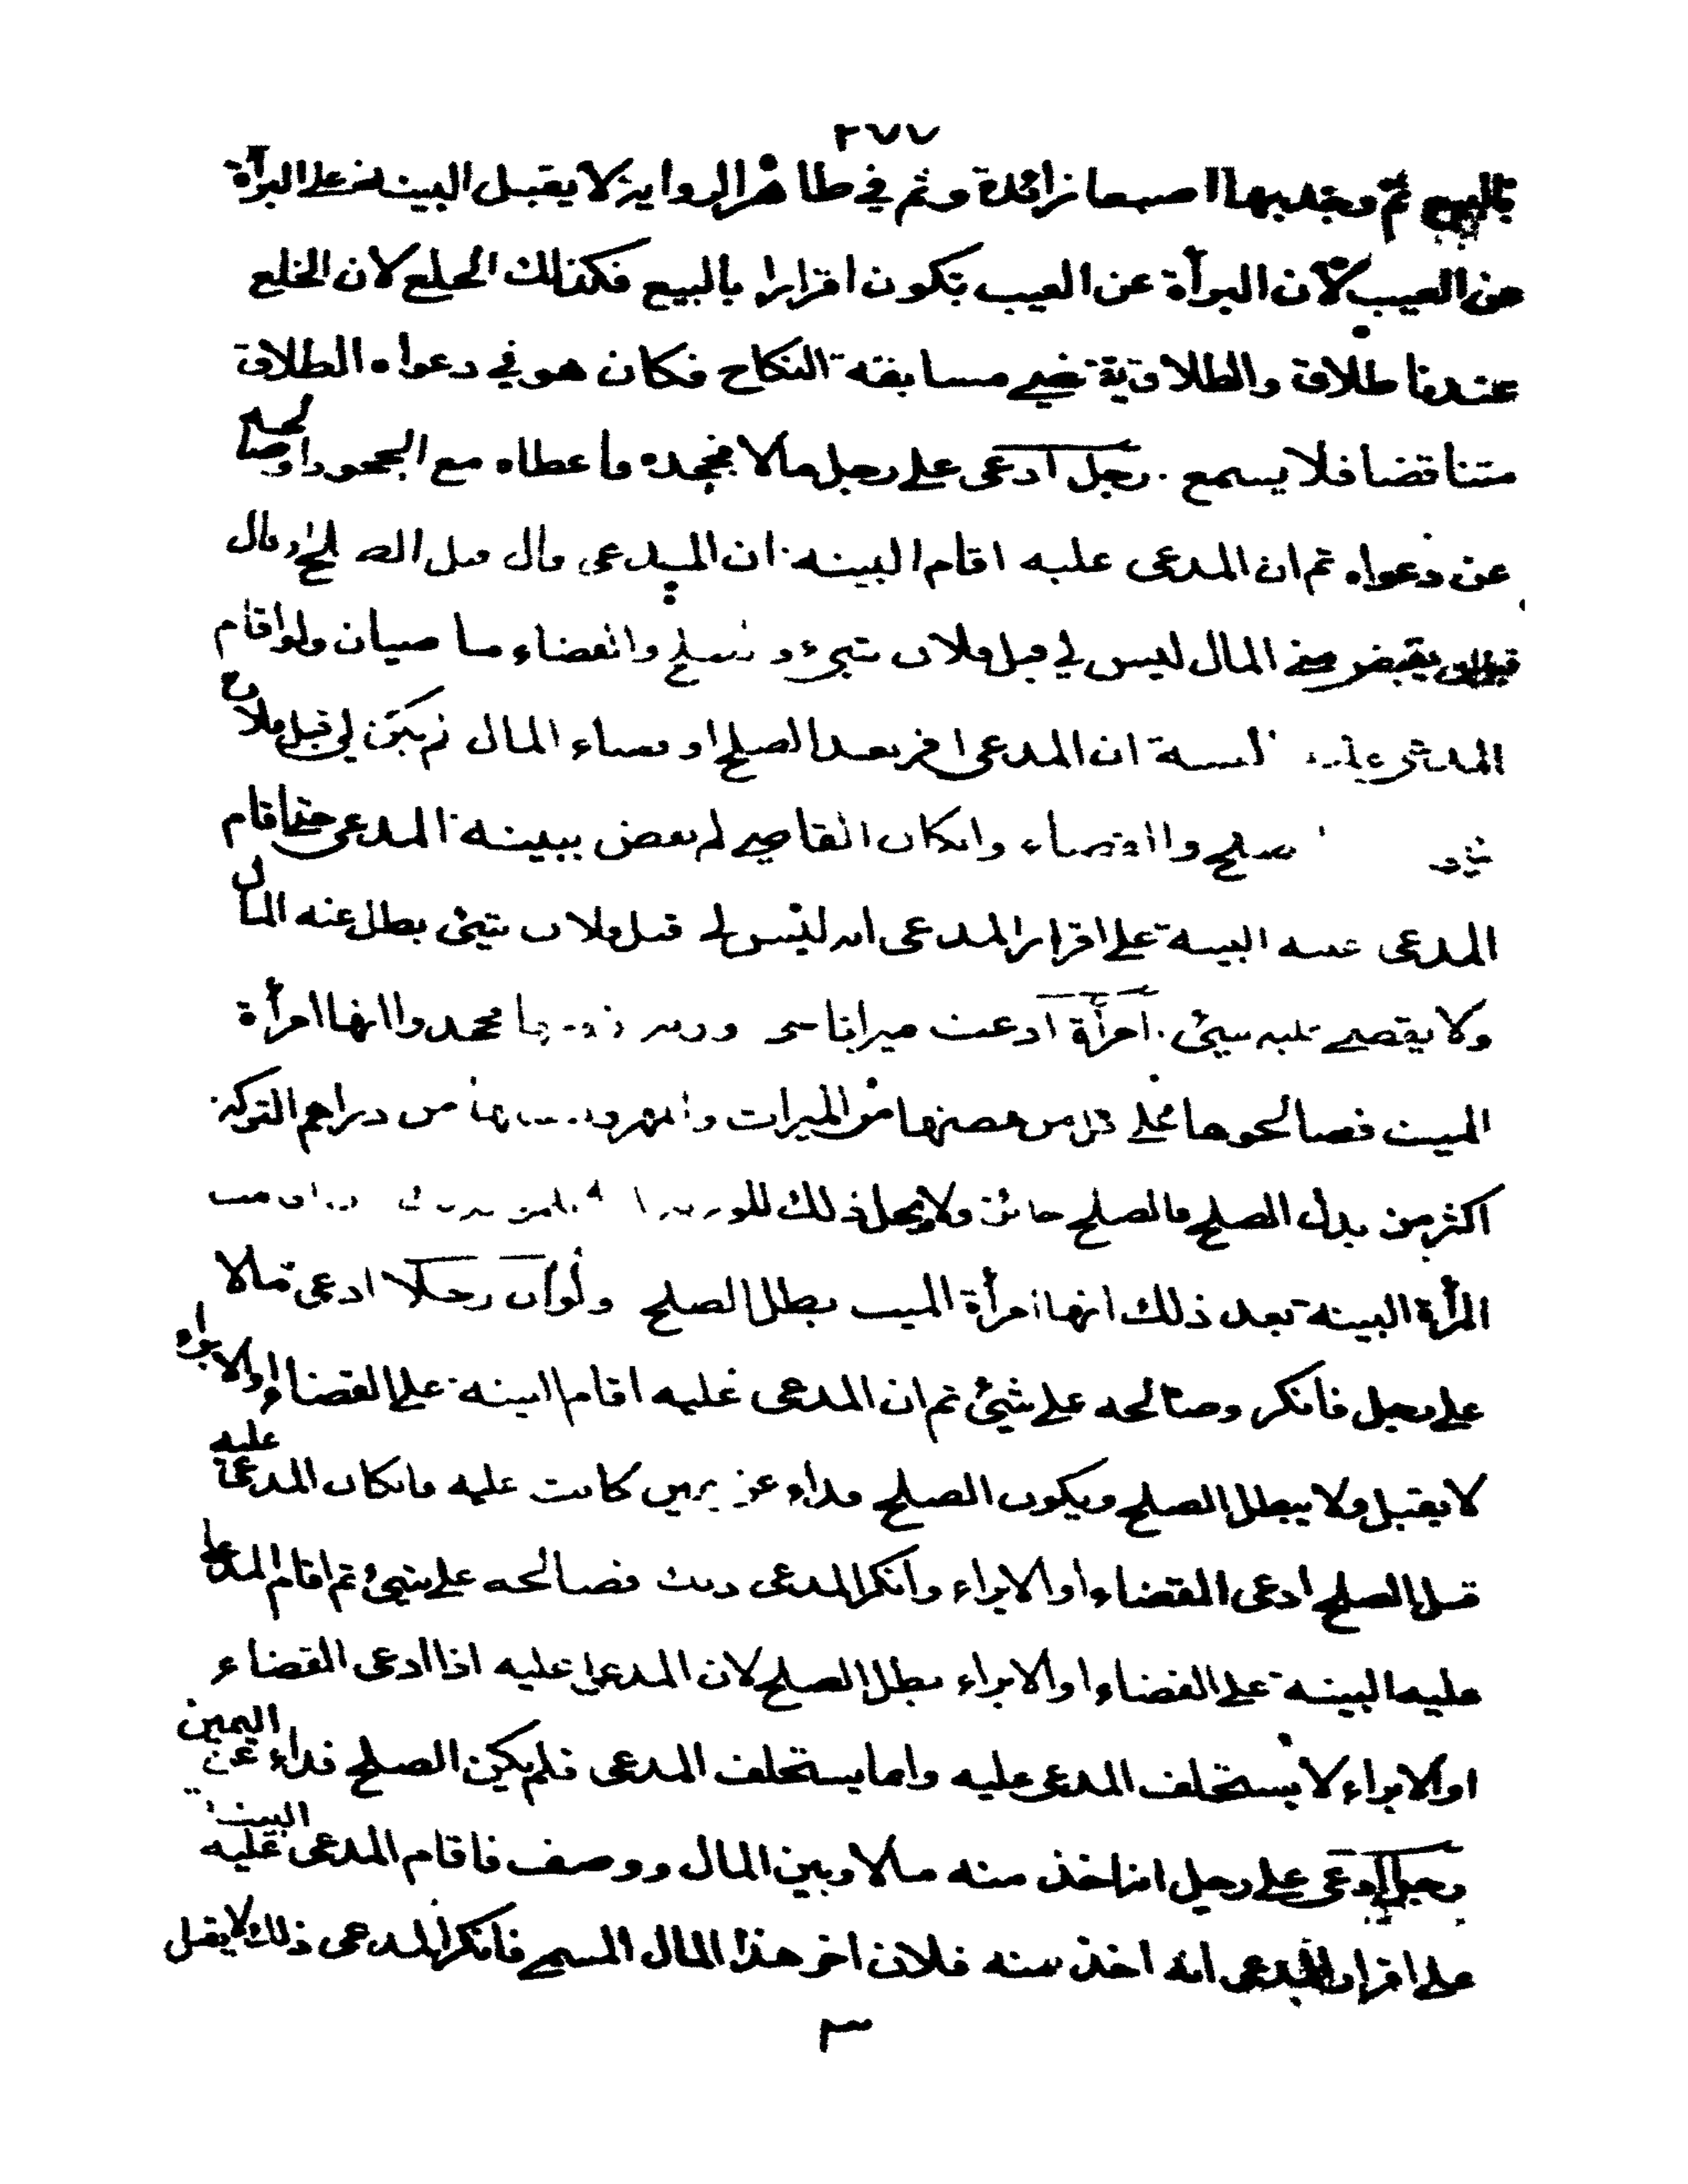 ٢٧٧
بالبيع ثم وجد بها اصبعا زائدة وثم في ظاهر الرواية لا يقبل البينة على البرآة
عن العيب لان البرآة عن العيب تكون اقرارا بالبيع فكذلك الخلع لان الخلع
عندنا طلاق والطلاق يقتضي مسابقة النكاح فكان هو في دعواه الطلاق
متناقضا فلا يسمع . رجل ادعى على رجل مالا فجحده فاعطاه مع الجحود او صالحه
عن دعواه ثم ان المدعى عليه اقام البينة ان المدعى قال قبل الصلح او قال
قبل ان يقبض مني المال ليس لي قبل فلان شيئ والصلح والقضاء ماضيان ولو اقام
المدعى عليه البينة ان المدعى اقر بعد الصلح او قضاء المال لم يكن لي قبل فلان
شيئ الصلح والقضاء وان كان القاضي لم يقض ببينة المدعى حتى اقام
المدعى عليه البينة على اقرار المدعى انه ليس لي قبل فلان شيئ بطل عنه المال
ولا يقضي عليه بشيئ . امرأة ادعت ميراثا محمدوا انها امرأة
الميت فصالحوها على اقل من حصتها من الميراث والمهر من دراهم التركة
اكثر من بدل الصلح فالصلح جائز ولا يحل ذلك للورثة
المرأة البينة بعد ذلك انها امرأة الميت بطل الصلح ولو ان رجلا ادعى مالا
على رجل فانكر وصالحه على شيئ ثم ان المدعى عليه اقام البينة على القضاء او الابراء
لا يقبل ولا يبطل الصلح ويكون الصلح فداء عن يمين كانت عليه فان كان المدعى عليه
قبل الصلح ادعى القضاء او الابراء وانكر المدعى ذلك فصالحه على شيئ ثم اقام المدعى
عليه البينة على القضاء او الابراء بطل الصلح لان المدعى عليه اذا ادعى القضاء
او الابراء لا يستحلف المدعى عليه وانما يستحلف المدعى فلم يكن الصلح فداء عن اليمين
رجل ادعى على رجل انه اخذ منه مالا وبين المال ووصف فاقام المدعى عليه البينة
على اقرار المدعى انه اخذ منه فلان اخر هذا المال المسمى فانكر المدعى ذلك لا يقبل